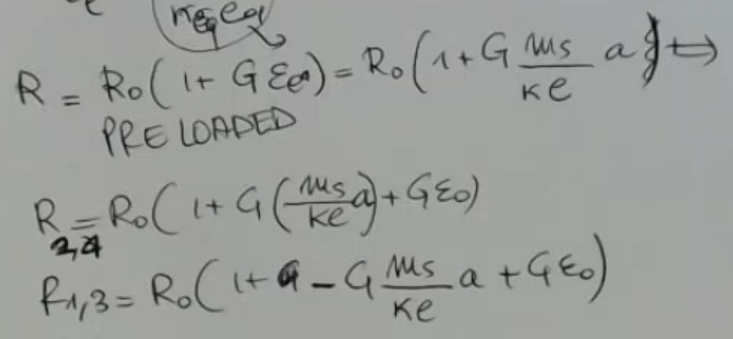 R = R₀(1+Gεₑₐ) = R₀(1+G ms/ke a) ⇔
PRELOADED
R₂,₄ = R₀(1+G(ms/ke a)+Gε₀)
R₁,₃ = R₀(1+ - G ms/ke a + Gε₀)